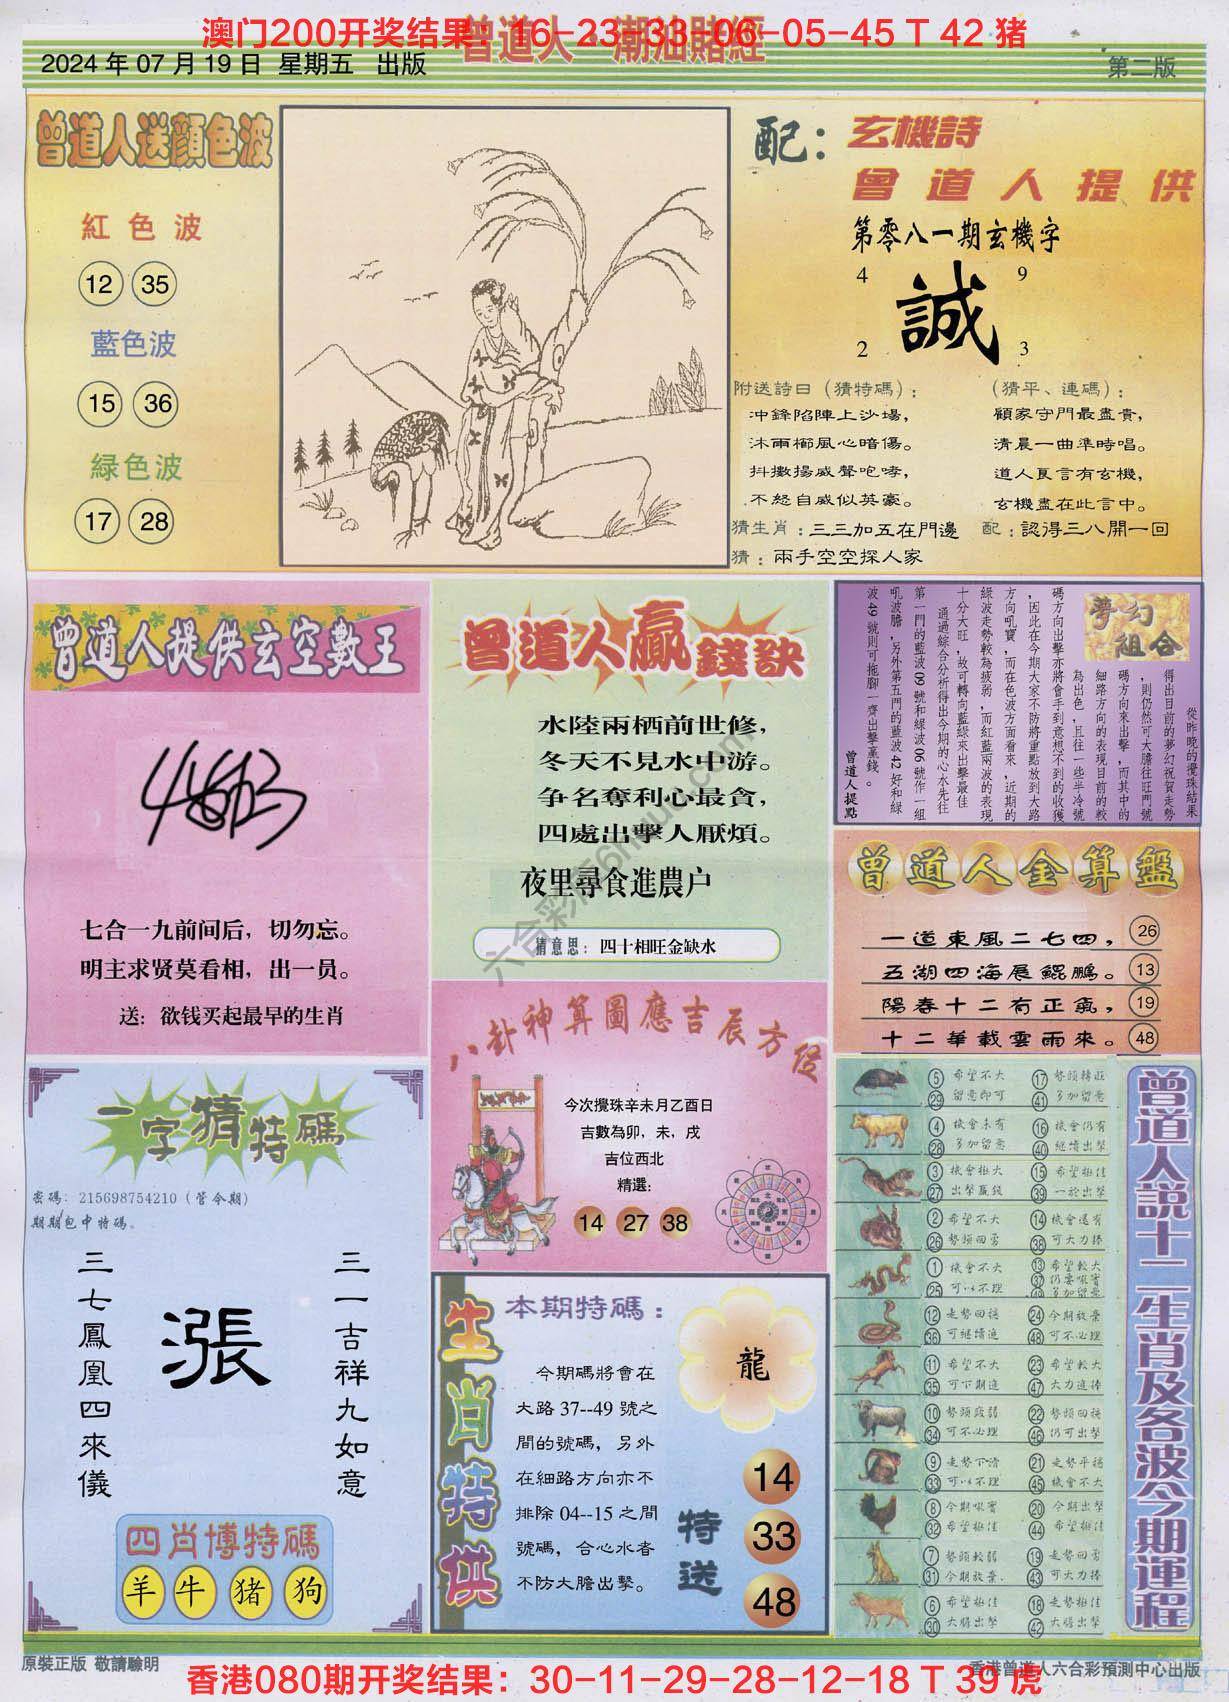 澳门200开奖结果：16-23-33-06-05-45 T 42 猪
曾道人·潮汕賭經
2024 年 07 月 19 日 星期五 出版
第二版
曾道人送顏色波
紅色波
12 35
藍色波
15 36
緑色波
17 28
配：玄機詩
曾道人提供
第零八一期玄機字
4 9
誠
2 3
附送詩曰（猜特碼）：
冲鋒陷陣上沙場，
沐雨櫛風心暗傷。
抖擻揚威聲咆哮，
不經自威似英豪。
（猜平、連碼）：
顧家守門最盡責，
清晨一曲準時唱。
道人良言有玄機，
玄機盡在此言中。
猜生肖：三三加五在門邊 配：認得三八開一回
猜：兩手空空探人家
曾道人提供玄空數王
七合一九前间后，切勿忘。
明主求贤莫看相，出一员。
送：欲钱买起最早的生肖
曾道人贏錢訣
水陸兩栖前世修，
冬天不見水中游。
争名奪利心最貪，
四處出擊人厭煩。
夜里尋食進農户
猜意思：四十相旺金缺水
夢幻組合
從昨晚的攪珠結果
得出目前的夢幻祝賀走勢
，則仍然可大膽往旺門號
碼方向來出擊，而其中的
細路方向的表現目前的較
為出色，且往一些半冷號
碼方向出擊亦將會手到意想不到的收獲
，因此在今期大家不防將重點放到大路
方向吼寶，而在色波方面看來，近期的
綠波走勢較為疲弱，而紅藍兩波的表現
十分大旺，故可轉向藍綠來出擊最佳
通過綜合分析得出今期的心水先往
第一門的藍波 09 號和綠波 06 號作一組
吼波膽，另外第五門的藍波 42 好和綠
波 49 號則可拖腳一齊出擊贏錢。
曾道人提點
曾道人金算盤
一道東風二七四， 26
五湖四海展鯤鵬。 13
陽春十二有正氣， 19
十二華載雲雨來。 48
八卦神算圖應吉辰方位
今次攪珠辛未月乙酉日
吉數為卯，未，戌
吉位西北
精選：
14 27 38
一字猜特碼
密碼：215698754210（管今期）
期期包中特碼。
三一吉祥九如意
漲
三七鳳凰四來儀
四肖博特碼
羊 牛 猪 狗
生肖特供
本期特碼：
龍
今期碼將會在
大路 37--49 號之
間的號碼，另外
在細路方向亦不
排除 04--15 之間
號碼，合心水者
不防大膽出擊。
特送
14
33
48
曾道人説十二生肖及各波今期運程
5 希望不大 17 勢頭轉旺
29 留意即可 41 多加留意
4 機會未有 16 機會仍有
28 多加留意 40 繼續出擊
3 機會推大 15 希望推佳
27 出擊贏錢 39 一於出擊
2 希望不大 14 機會還有
26 勢頭回勇 38 可大力捧
1 機會不大 13 希望較大
25 可以不理 37 仍要吼實
49 多加留意
12 走勢回穩 24 今期放棄
36 可繼續追 48 可不必理
11 希望不大 23 希望較大
35 可下期追 47 大力追捧
10 勢頭疲弱 22 勢頭回穩
34 可不必理 46 仍可出擊
9 走勢下滑 21 走勢平穩
33 可以不理 45 機會不大
8 今期吼實 20 今期出擊
32 希望推佳 44 希望推佳
7 勢頭較弱 19 走勢回勇
31 今期放棄. 43 可大力捧
6 希望推佳 18 走勢推佳
30 大膽出擊 42 大膽出擊
原裝正版 敬請驗明
香港曾道人六合彩預測中心出版
香港080期开奖结果：30-11-29-28-12-18 T 39 虎